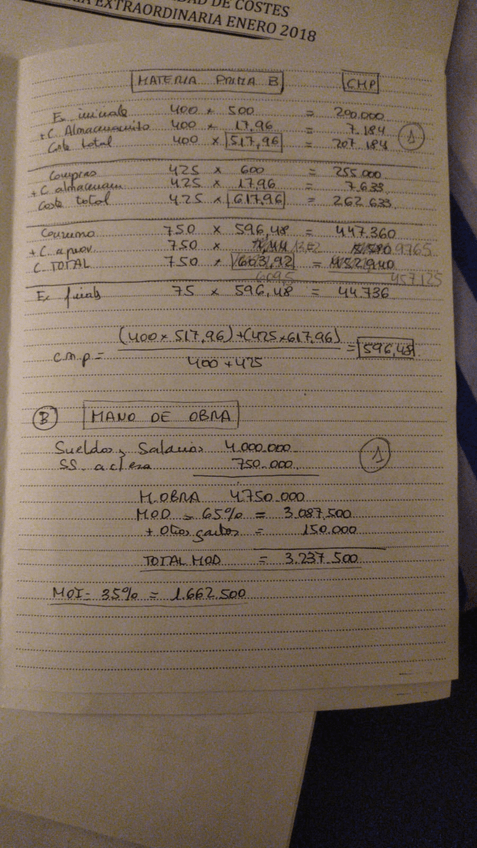 DAD DE COSTES
RIA EXTRAORDINARIA ENERO 2018
MATERIA PRIMA B CMP
Ex. iniciales 400 × 500 = 200.000
+ C. Almacenamiento 400 × 17,96 = 7.184
Coste total 400 × 517,96 = 207.184 1
Compras 425 × 600 = 255.000
+ C. almacenam 425 × 17,96 = 7.633
Coste total 425 × 617,96 = 262.633
Consumo 750 × 596,48 = 447.360
+ C. aprov. 750 × 13,02 9765
C. TOTAL 750 × 603,92 = 452.940
609,5 457.125
Ex. finales 75 × 596,48 = 44.736
c.m.p = (400 × 517,96) + (425 × 617,96) = 596,48
400 + 425
B MANO DE OBRA
Sueldos y Salarios 4.000.000
SS. a c/ 750.000 1
M.OBRA 4.750.000
MOD 65% = 3.087.500
+ Otros gastos = 150.000
TOTAL MOD = 3.237.500
MOI - 35% = 1.662.500